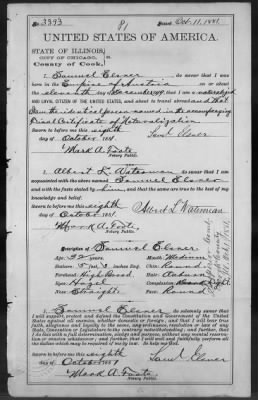 No. 3393
81
Issued Oct. 11, 1881.
UNITED STATES OF AMERICA.
STATE OF ILLINOIS,
CITY OF CHICAGO,
County of Cook.
ss.
I, Samuel Elsner, do swear that I was
born in the Empire of Austria on or about
the eleventh day of December 1849, that I am a naturalized
AND LOYAL CITIZEN OF THE UNITED STATES, and about to travel abroad and that
I am the identical person named in the accompanying
Final Certificate of Naturalization.
Sworn to before me this eighth
day of October 1881.
Saml Elsner
Mark A. Foote
Notary Public.
I, Albert L. Waterman, do swear that I am
acquainted with the above named Samuel Elsner and
with the facts stated by him, and that the same are true to the best of my
knowledge and belief.
Sworn to before me this eighth
day of October 1881.
Albert L. Waterman
Mark A. Foote
Notary Public.
Description of Samuel Elsner
Age: 32 years. Mouth: Medium
Stature: 5 feet, 3 inches Eng. Chin: Round
Forehead: High Broad. Hair: Auburn
Eyes: Hazel Complexion:
Nose: Straight. Face: Round
I, Samuel Elsner, do solemnly swear that I
will support, protect and defend the Constitution and Government of the United
States against all enemies, whether domestic or foreign; and that I will bear true
faith, allegiance and loyalty to the same, any ordinance, resolution or law of any
State, Convention or Legislature to the contrary notwithstanding; and further,
that I do this with a full determination, pledge and purpose, without any mental
reservation or evasion whatsoever; and further, that I will well and faithfully perform all
the duties which may be required of me by law. So help me God.
Sworn to before me this eighth
day of October 1881
Saml Elsner
Mark A. Foote
Notary Public.